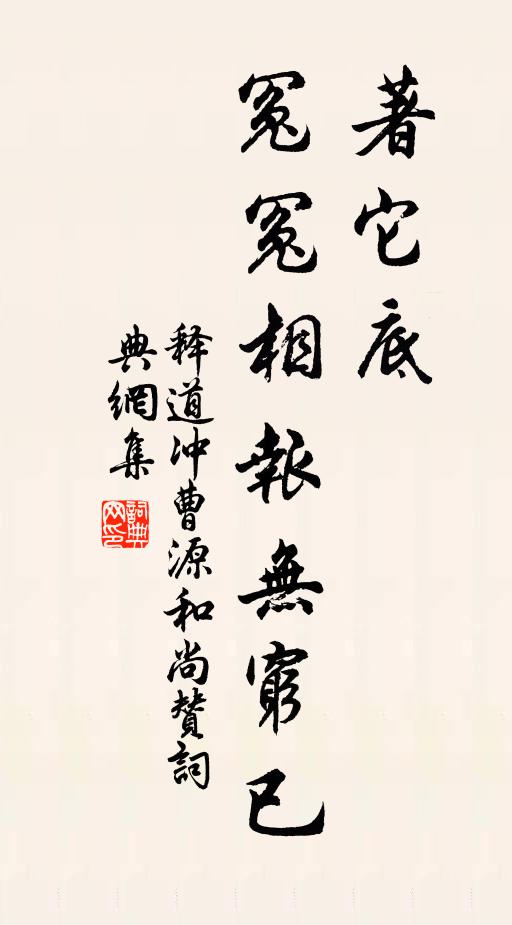 著它底
冤冤相報無窮已
释道冲曹源和尚贊詞
典網集
詞典
网印